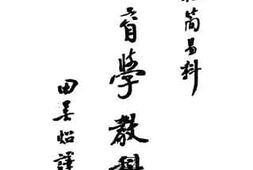 簡易科
育學教科
田吳炤譯